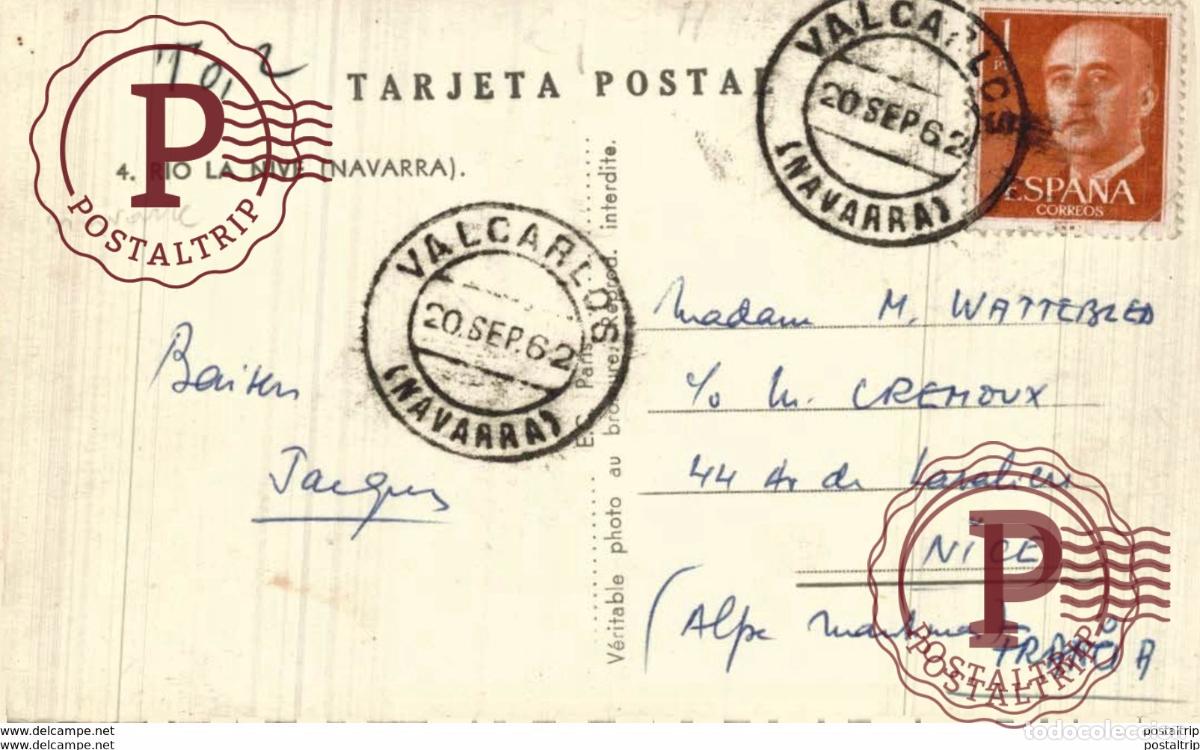 TARJETA POSTAL
4. RIO LA NIVE (NAVARRA).
VALCARLOS
20.SEP.62
(NAVARRA)
VALCARLOS
20.SEP.62
(NAVARRA)
1
ESPAÑA
CORREOS
Baisers
Jacques
Véritable photo au bromure. Reprod. interdite.
Paris
Madam M. WATTEBLED
c/o M. CREMOUX
44 Av de
NICE
(Alpe Maritime
P
POSTALTRIP
P
POSTALTRIP
todocoleccion
www.postaltrip.com
www.postaltrip.com
postaltrip
postaltrip